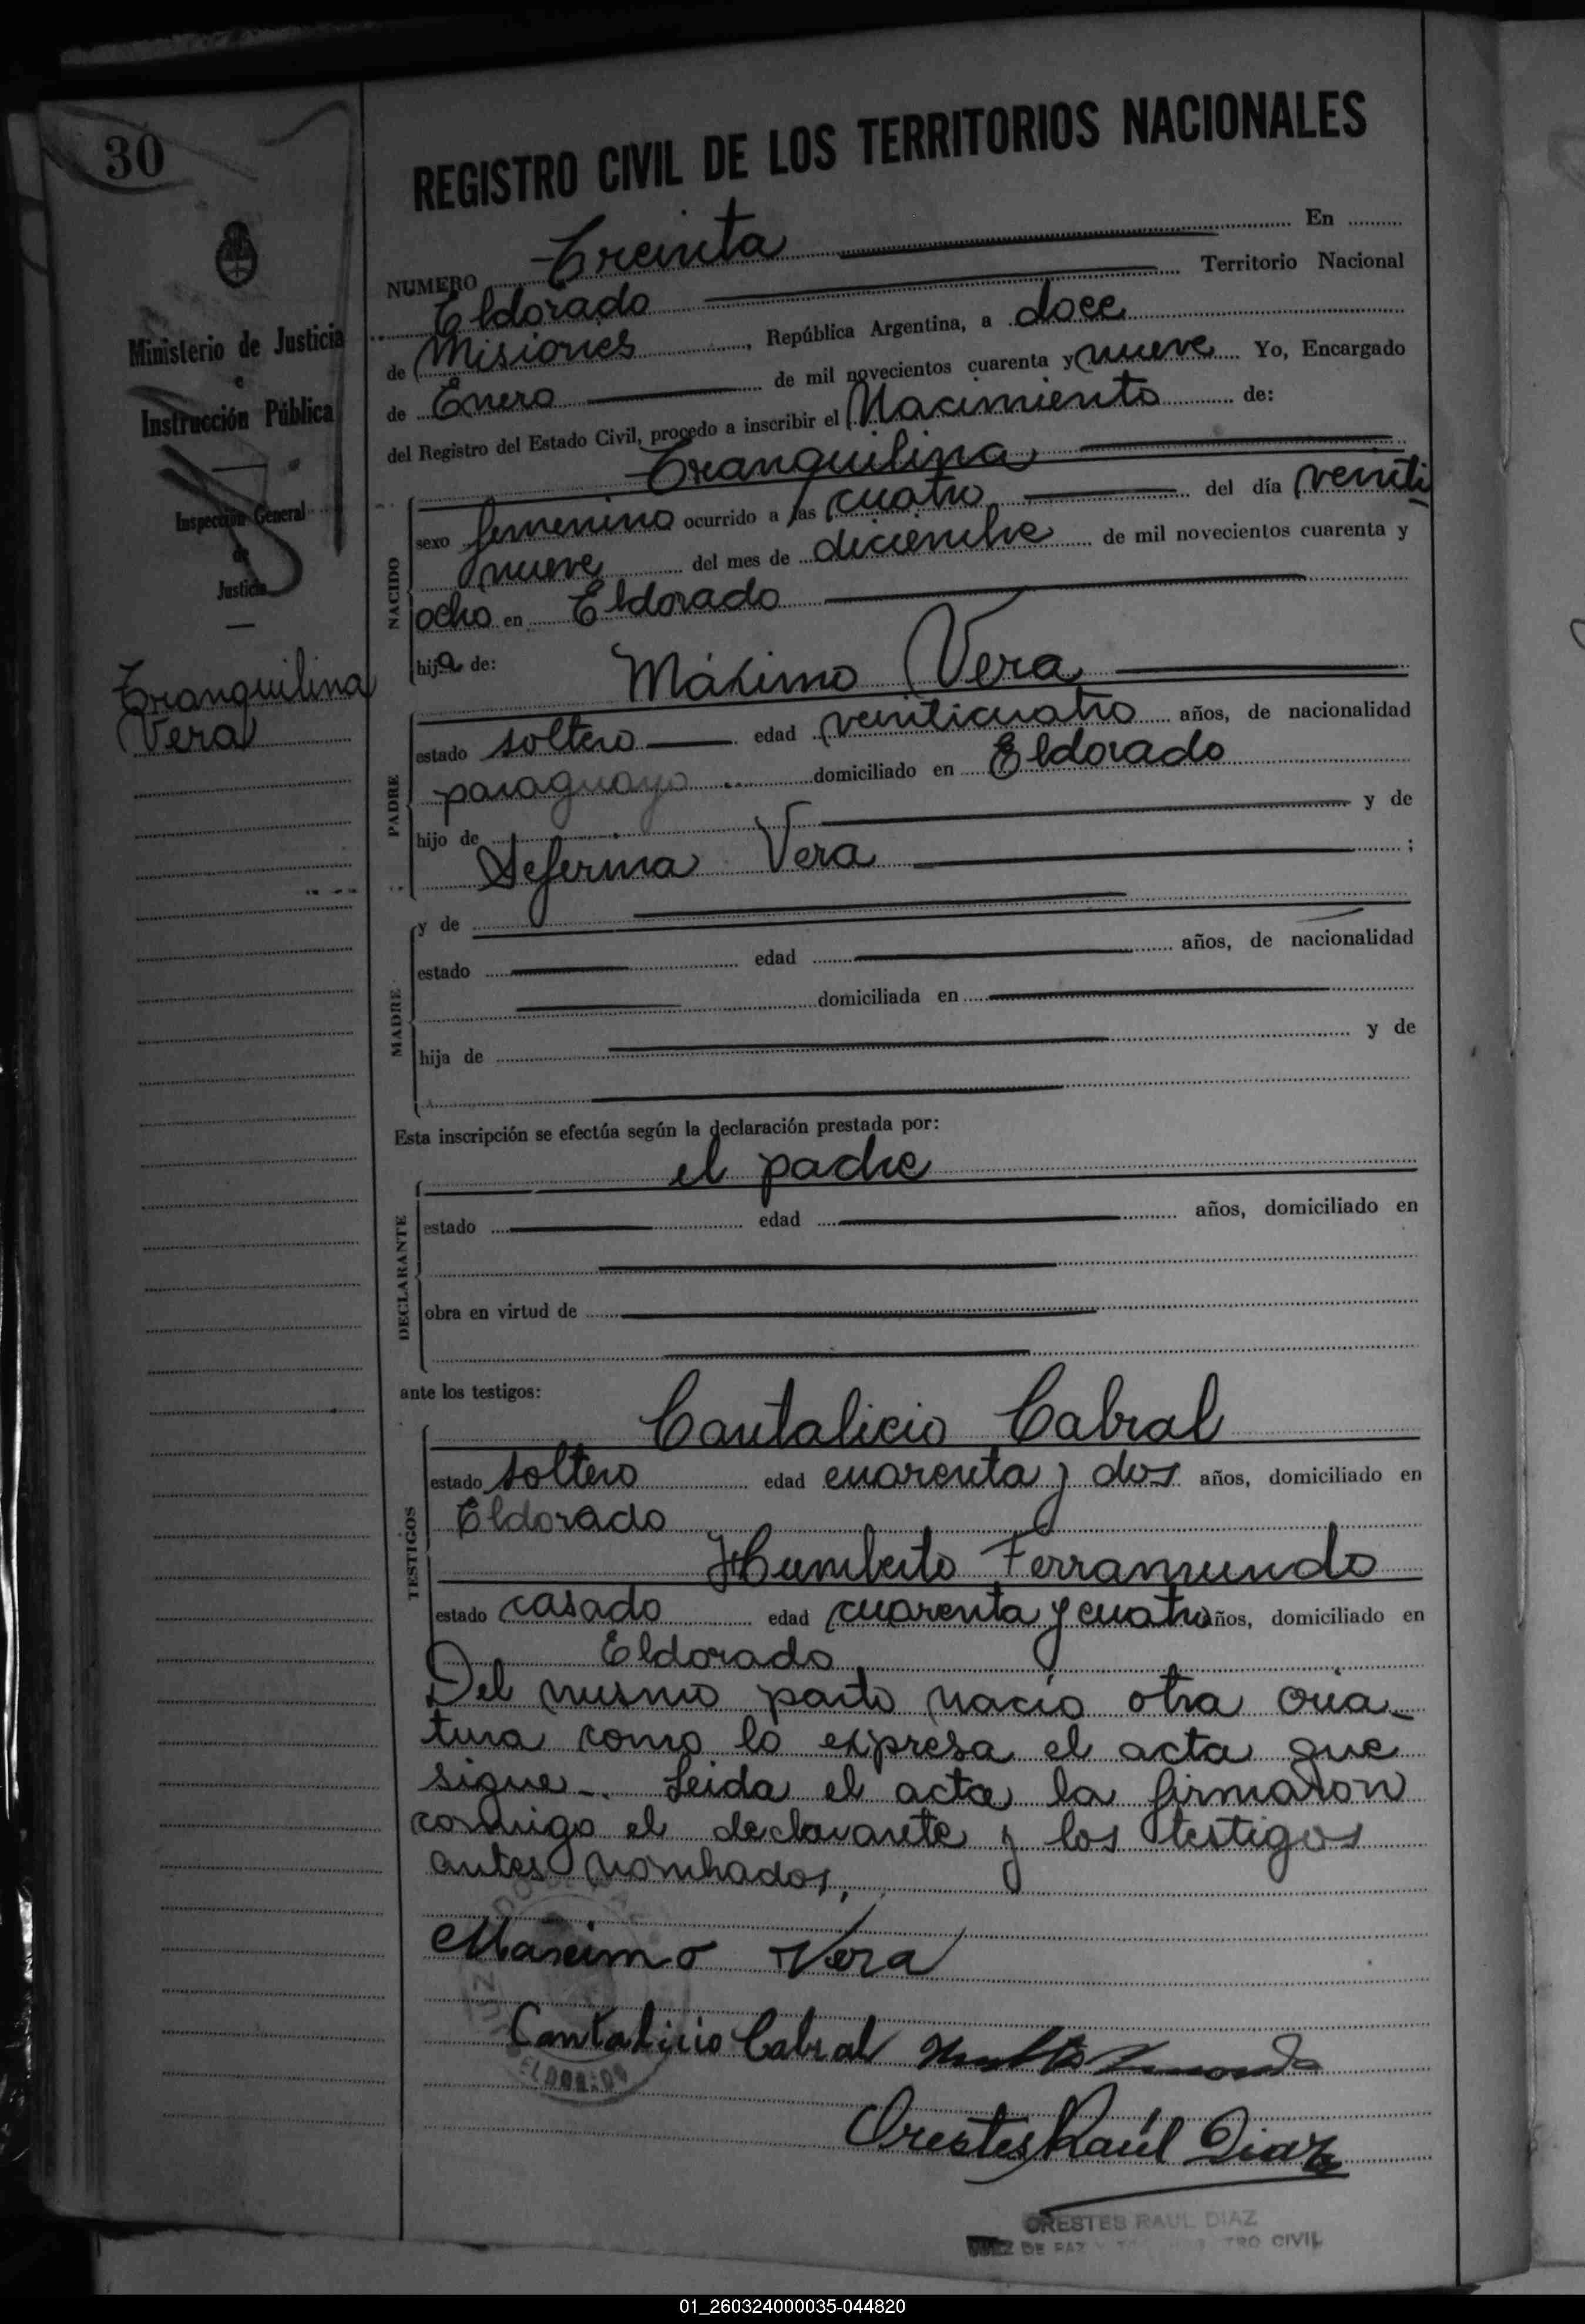 30
Ministerio de Justicia
e
Instrucción Pública
Inspección General
de
Justicia
Tranquilina
Vera
REGISTRO CIVIL DE LOS TERRITORIOS NACIONALES
NUMERO Treinta En
Eldorado Territorio Nacional
de Misiones, República Argentina, a doce
de Enero de mil novecientos cuarenta y nueve Yo, Encargado
del Registro del Estado Civil, procedo a inscribir el Nacimiento de:
Tranquilina
NACIDO
sexo femenino ocurrido a las cuatro del día veinti
nueve del mes de diciembre de mil novecientos cuarenta y
ocho en Eldorado
hija de:
Máximo Vera
PADRE
estado soltero edad veinticuatro años, de nacionalidad
paraguayo domiciliado en Eldorado
hijo de y de
Seferina Vera ;
MADRE
y de
estado edad años, de nacionalidad
domiciliada en
hija de y de
Esta inscripción se efectúa según la declaración prestada por:
el padre
DECLARANTE
estado edad años, domiciliado en
obra en virtud de
ante los testigos:
Cantalicio Cabral
TESTIGOS
estado soltero edad cuarenta y dos años, domiciliado en
Eldorado
Humberto Ferramundo
estado casado edad cuarenta y cuatro años, domiciliado en
Eldorado
Del mismo parto nació otra cria-
tura como lo expresa el acta que
sigue-. Leida el acta la firmaron
conmigo el declarante y los testigos
antes nombrados.
Maximo Vera
Cantalicio Cabral
ELDORADO
Orestes Raúl Diaz
ORESTES RAUL DIAZ
JUEZ DE PAZ Y CIVIL
01_260324000035-044820